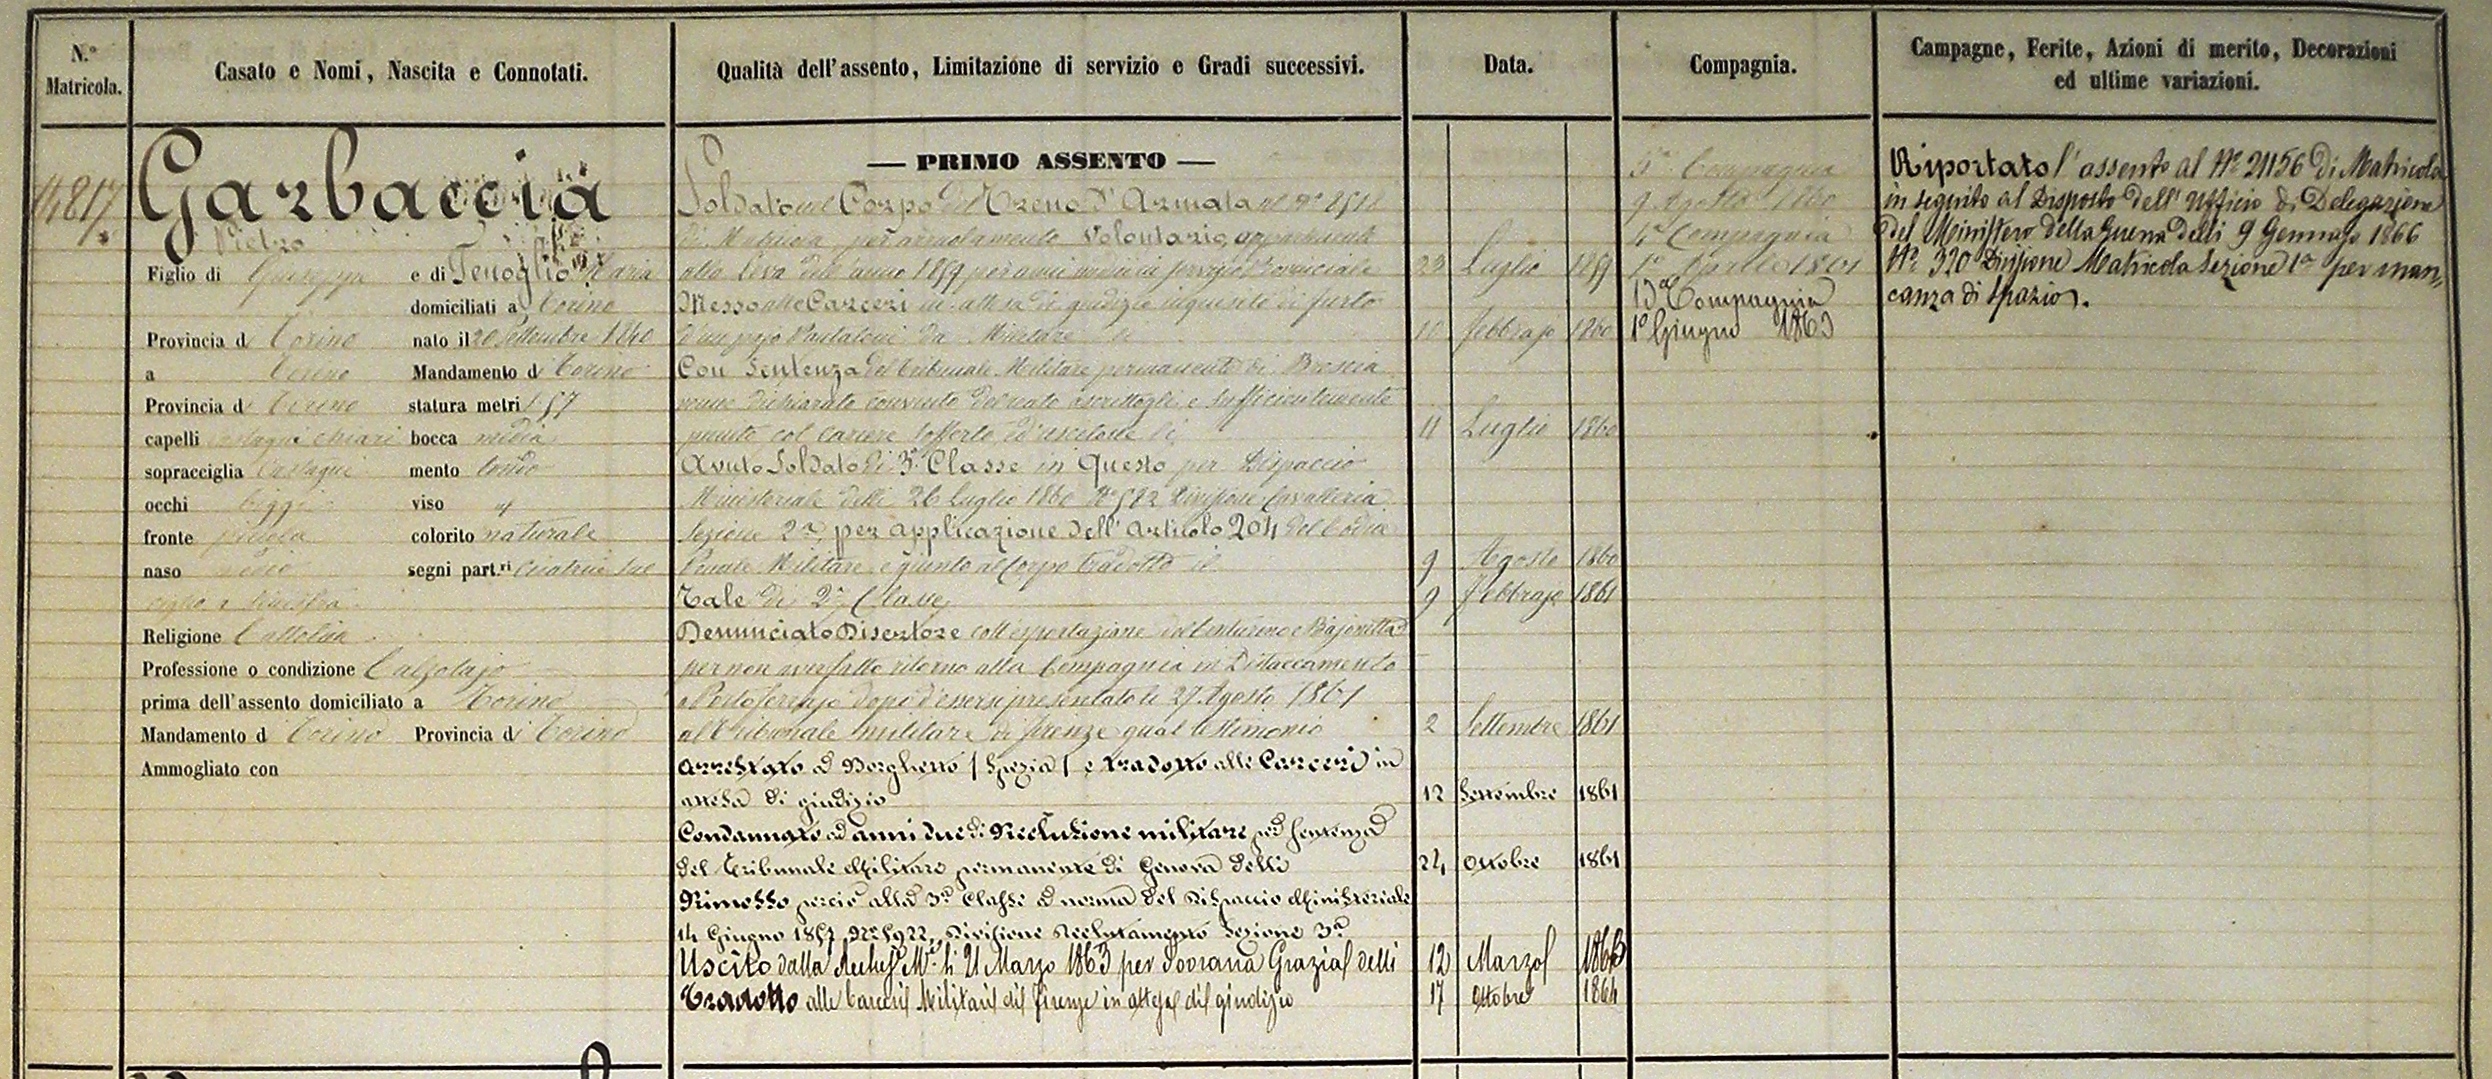 N.° Matricola.
Casato e Nomi, Nascita e Connotati.
Qualità dell'assento, Limitazione di servizio e Gradi successivi.
Data.
Compagnia.
Campagne, Ferite, Azioni di merito, Decorazioni
ed ultime variazioni.
14817
Garbaccia
Pietro
Figlio di Giuseppe e di Tenoglio Maria
domiciliati a Torino
Provincia d Torino nato il 20 Settembre 1840
a Torino Mandamento d Torino
Provincia d Torino statura metri 1.57
capelli castagni chiari bocca media
sopracciglia Castagni mento tondo
occhi biggi viso
fronte colorito naturale
naso medio segni part.ri Cicatrice sul
ciglio a sinistra
Religione Cattolica
Professione o condizione Calzolajo
prima dell'assento domiciliato a Torino
Mandamento d Torino Provincia d Torino
Ammogliato con
— PRIMO ASSENTO —
Soldato nel Corpo del Treno d'Armata al N°
di Matricola per arruolamento Volontario, appartenente
alla leva dell'anno 1859 per anni undici servizio Provinciale 23 Luglio 1859
Messo alle Carceri in attesa di giudizio inquisito di furto
d'un pajo Pantaloni da Militare li 10 febbrajo 1860
Con Sentenza del tribunale Militare permanente di Brescia
venne dichiarato convinto del reato ascrittogli e sufficientemente
punito col carcere sofferto, ed'uscitone li 11 Luglio 1860
Avuto Soldato di 3ª Classe in Questo per Dispaccio
Ministeriale delli 26 Luglio 1860 N° 582 Divisione Cavalleria
Sezione 2ª, per applicazione dell'articolo 204 del Codice
Penale Militare, e giunto al Corpo tradotto il 9 Agosto 1860
Tale di 2ª Classe 9 Febbrajo 1861
Denunciato Disertore coll'esportazione del Centurino e Bajonetta
per non aver fatto ritorno alla Compagnia in Distaccamento
a Portoferrajo dopo d'essersi presentato li 27 Agosto 1861
al tribunale militare di firenze qual testimonio 2 Settembre 1861
Arrestato a Borghetto (Spezia) e tradotto alle Carceri in
attesa di giudizio 12 Settembre 1861
Condannato ad anni due di Reclusione militare per Sentenza
del Tribunale Militare permanente di Genova delli 24 Ottobre 1861
Rimesso perciò alla 3ª Classe a norma del Dispaccio Ministeriale
14 Giugno 1857 N° 5922, Divisione Reclutamento Sezione 3ª
Uscito dalla Reclus.e M.re li 21 Marzo 1863 per Sovrana Grazia delli 12 Marzo 1863
Tradotto alle Carceri Militari di Firenze in attesa di giudizio 17 Ottobre 1864
5ª Compagnia
9 Agosto 1860
4ª Compagnia
1° Aprile 1861
13ª Compagnia
1° Giugno 1863
Riportato l'assento al N° 21156 di Matricola
in seguito al Disposto dell'Ufficio di Delegazione
del Ministero della Guerra delli 9 Gennajo 1866
N° 320 Divisione Matricola Sezione 1ª per man=
canza di spazio.